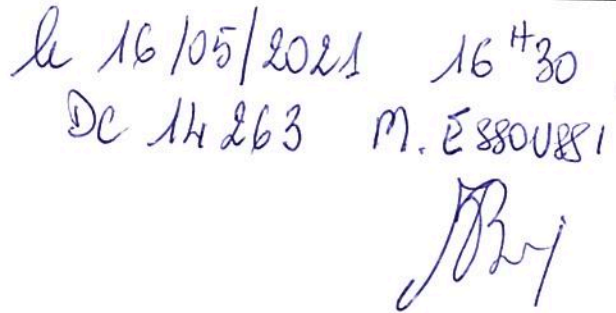 le 16/05/2021 16H30
DC 14263 M. ESSOUSSI